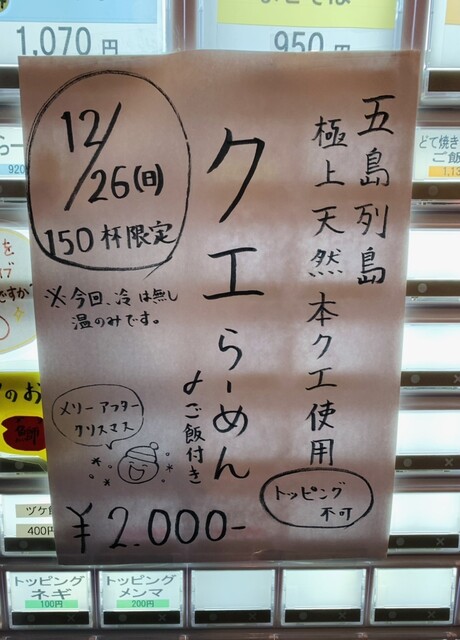 1,070円
950円
五島列島
極上天然本クエ使用
クエらーめん
〆ご飯付き
12/26(日)
150杯限定
※今回、冷は無し
温のみです。
メリーアフター
クリスマス
トッピング
不可
¥2.000-
どて焼き
ご飯
920
を
ですか
のお
ヅケ
400円
トッピング
ネギ
100円
トッピング
メンマ
200円